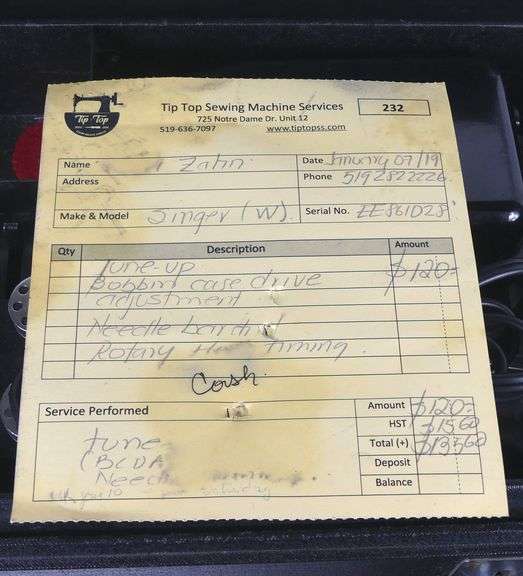 Tip Top
Tip Top Sewing Machine Services
232
725 Notre Dame Dr. Unit 12
519-636-7097 www.tiptopss.com
Name Zahn Date January 07/19
Address Phone 5192822226
Make & Model Singer (W). Serial No. EE861028
Qty Description Amount
Tune-up $120-
Bobbin case drive
adjustment
Needle bar
Rotary timing.
Cash.
Service Performed Amount $120-
HST $15.60
tune Total (+) $135.60
(BCDA Deposit
Need
Balance